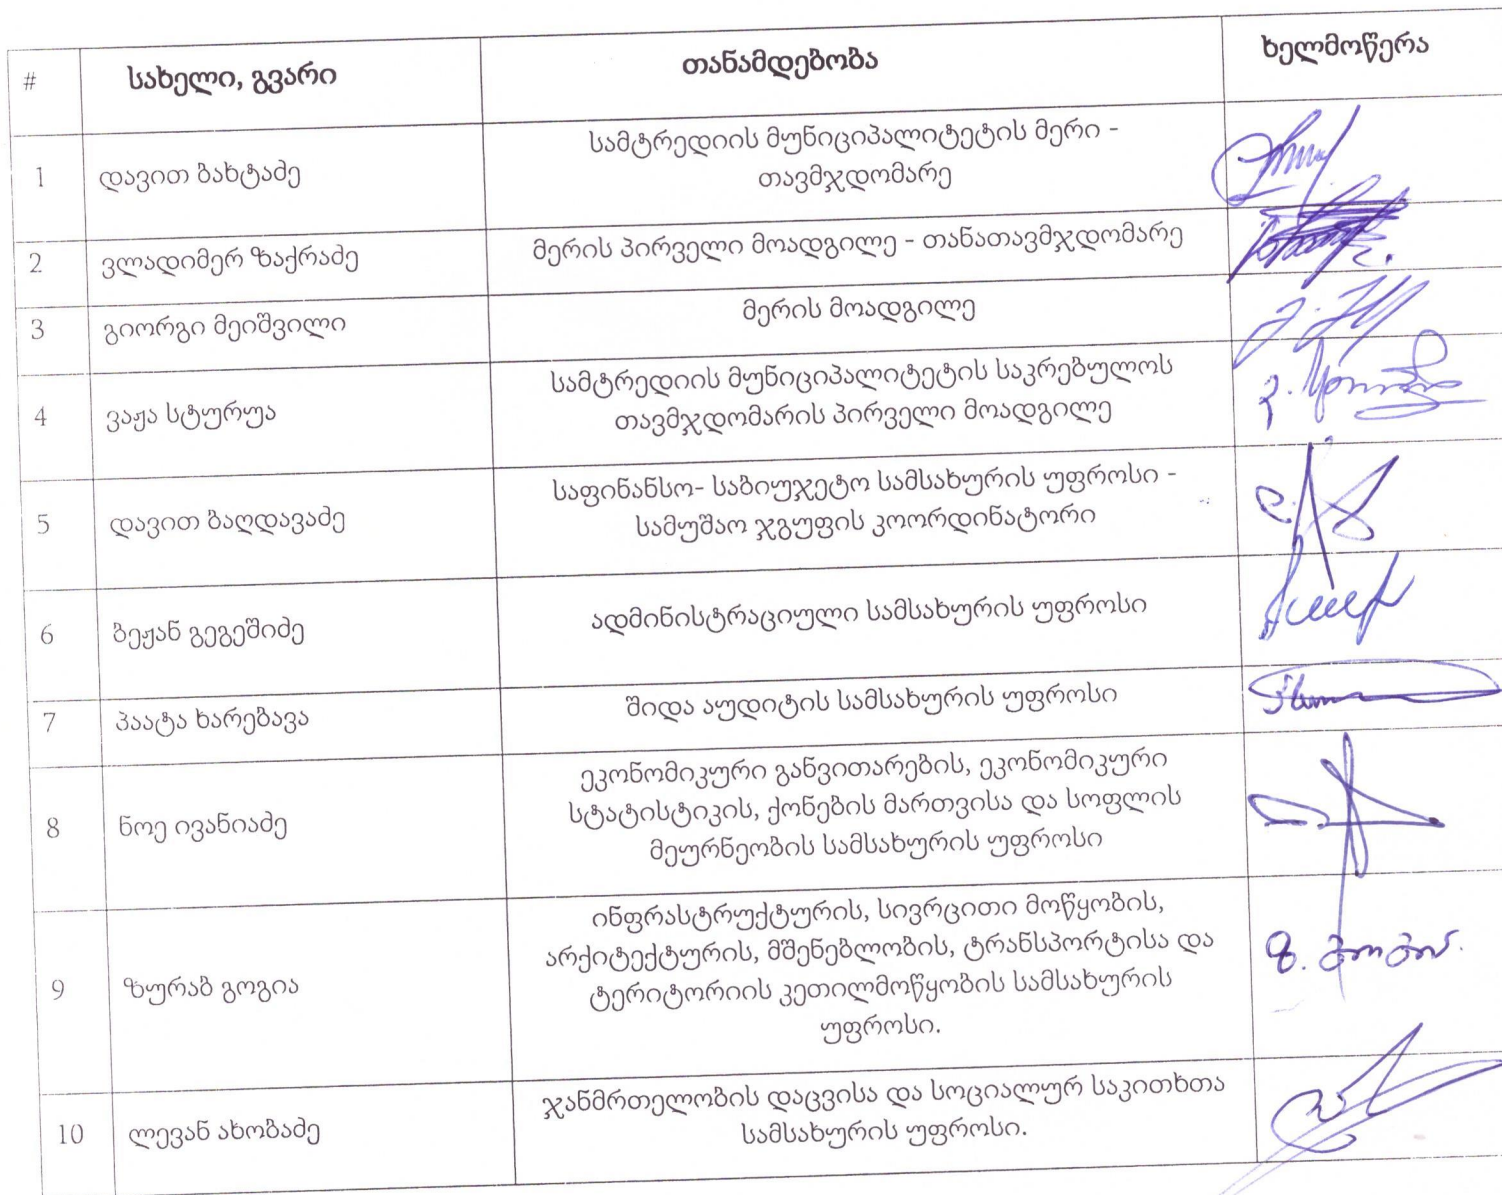 # სახელი, გვარი თანამდებობა ხელმოწერა
1 დავით ბახტაძე სამტრედიის მუნიციპალიტეტის მერი -
თავმჯდომარე
2 ვლადიმერ ზაქრაძე მერის პირველი მოადგილე - თანათავმჯდომარე
3 გიორგი მეიშვილი მერის მოადგილე
4 ვაჟა სტურუა სამტრედიის მუნიციპალიტეტის საკრებულოს
თავმჯდომარის პირველი მოადგილე
5 დავით ბაღდავაძე საფინანსო- საბიუჯეტო სამსახურის უფროსი -
სამუშაო ჯგუფის კოორდინატორი
6 ბეჟან გეგეშიძე ადმინისტრაციული სამსახურის უფროსი
7 პაატა ხარებავა შიდა აუდიტის სამსახურის უფროსი
8 ნოე ივანიაძე ეკონომიკური განვითარების, ეკონომიკური
სტატისტიკის, ქონების მართვისა და სოფლის
მეურნეობის სამსახურის უფროსი
9 ზურაბ გოგია ინფრასტრუქტურის, სივრცითი მოწყობის,
არქიტექტურის, მშენებლობის, ტრანსპორტისა და
ტერიტორიის კეთილმოწყობის სამსახურის
უფროსი.
ზ. გოგია.
10 ლევან ახობაძე ჯანმრთელობის დაცვისა და სოციალურ საკითხთა
სამსახურის უფროსი.